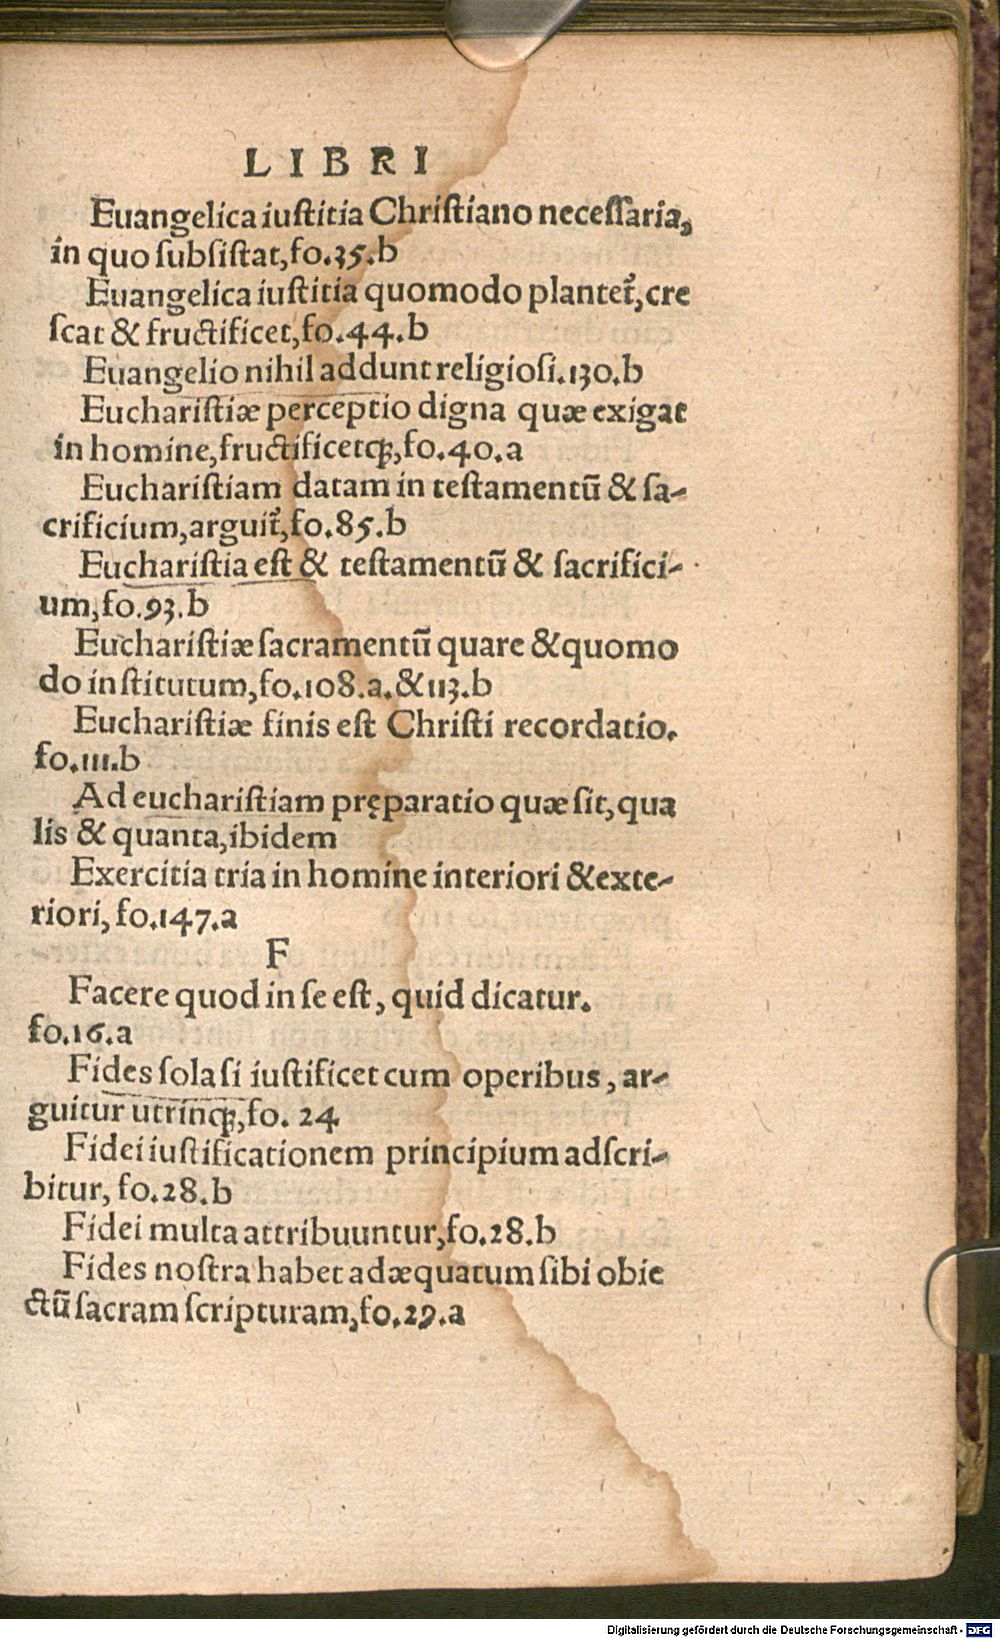 LIBRI
Euangelica iuſtitia Chriſtiano neceſſaria,
in quo ſubſiſtat, fo.35.b
Euangelica iuſtitia quomodo plantet᷑, cre
ſcat & fructificet, fo.44.b
Euangelio nihil addunt religioſi.130.b
Euchariſtiæ perceptio digna quæ exigat
in homine, fructificetq;, fo.40.a
Euchariſtiam datam in teſtamentū & ſa-
crificium, arguit᷑, fo.85.b
Euchariſtia eſt & teſtamentū & ſacrifici-
um, fo.93.b
Euchariſtiæ ſacramentū quare & quomo
do inſtitutum, fo.108.a.&113.b
Euchariſtiæ finis eſt Chriſti recordatio.
fo.111.b
Ad euchariſtiam pręparatio quæ ſit, qua
lis & quanta, ibidem
Exercitia tria in homine interiori & exte-
riori, fo.147.a
F
Facere quod in ſe eſt, quid dicatur.
fo.16.a
Fides ſola ſi iuſtificet cum operibus, ar-
guitur utrinq;, fo. 24
Fidei iuſtificationem principium adſcri-
bitur, fo.28.b
Fidei multa attribuuntur, fo.28.b
Fides noſtra habet adæquatum ſibi obie
ctū ſacram ſcripturam, fo.29.a
Digitalisierung gefördert durch die Deutsche Forschungsgemeinschaft - DFG